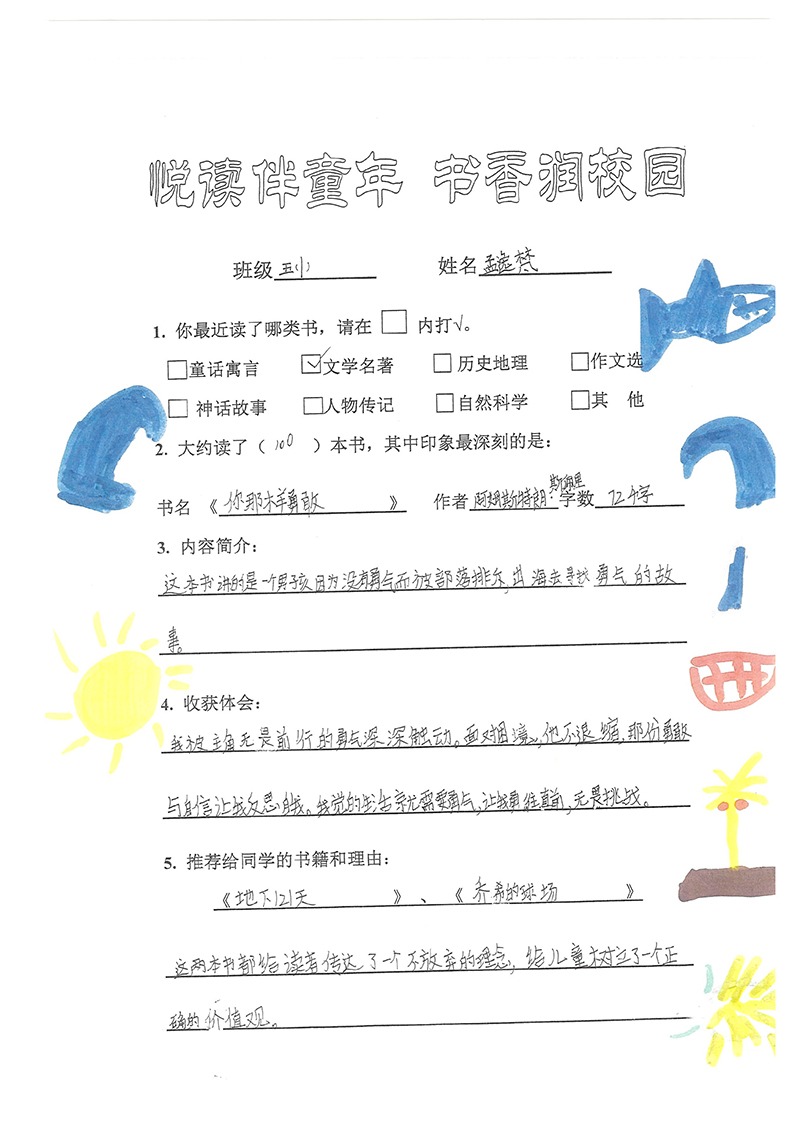 悦读伴童年 书香润校园
班级 五小 姓名 孟逸梵
1. 你最近读了哪类书，请在 □ 内打√。
□童话寓言 ☑文学名著 □历史地理 □作文选
□ 神话故事 □人物传记 □自然科学 □其 他
2. 大约读了（ 100 ）本书，其中印象最深刻的是：
书名 《 你那样勇敢 》 作者 阿姆斯特朗·斯佩里 字数 72个字
3. 内容简介：
这本书讲的是一个男孩因为没有勇气而被部落排斥，出海去寻找勇气的故
事。
4. 收获体会：
我被主角无畏前行的勇气深深触动。面对困境，他不退缩，那份勇敢
与自信让我反思自我。我觉的生活就需要勇气，让我勇往直前，无畏挑战。
5. 推荐给同学的书籍和理由：
《地下121天 》、《 乔希的球场 》
这两本书都给读者传达了一个不放弃的理念，给儿童树立了一个正
确的价值观。